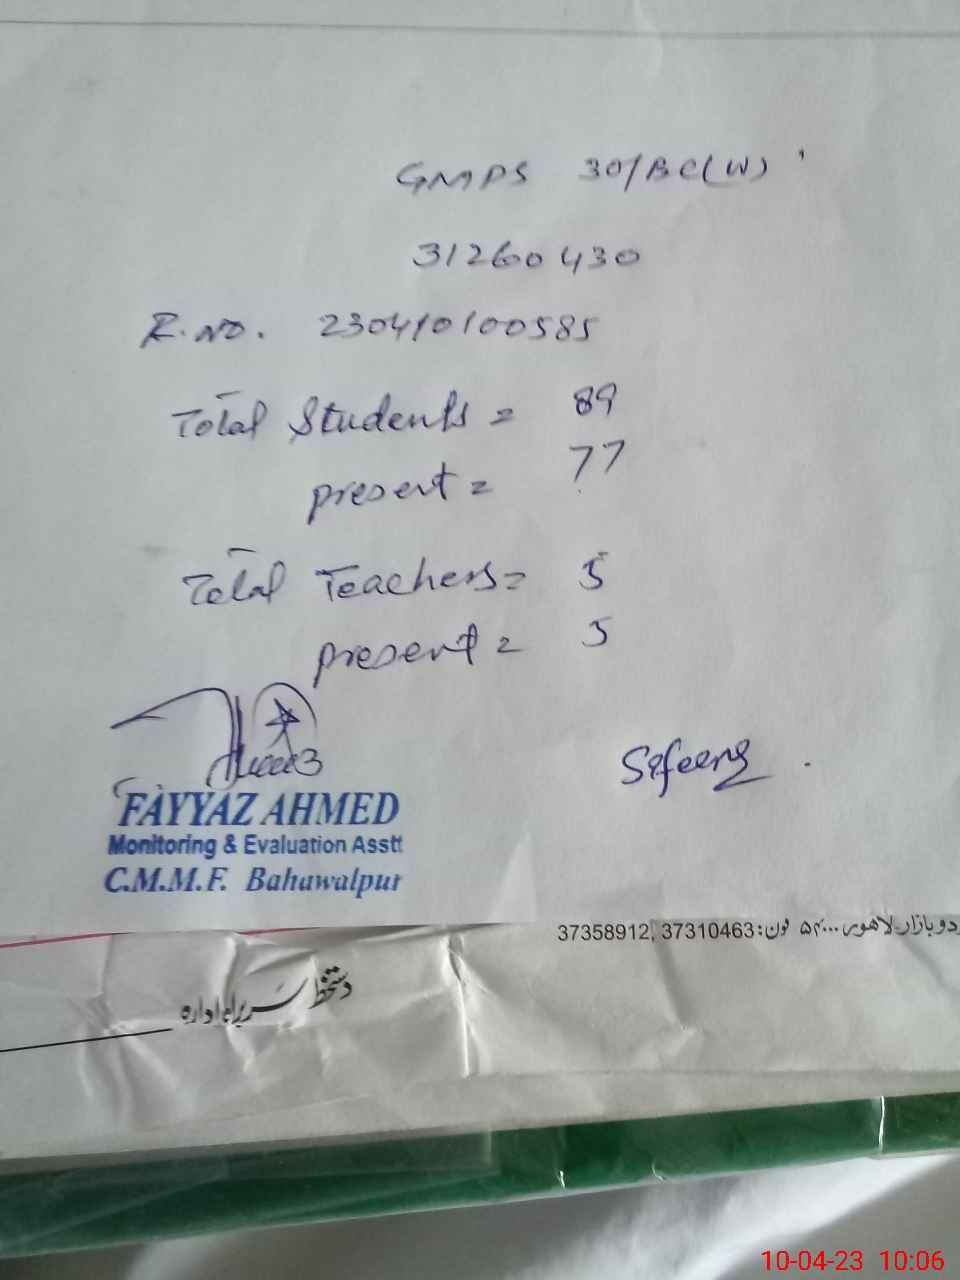 GMPS 30/BC(W)
31260430
R.NO. 230410100585
Total Students = 89
present = 77
Total Teachers = 5
present = 5
FAYYAZ AHMED
Monitoring & Evaluation Asstt
C.M.M.F. Bahawalpur
دو بازار لاہور ۵۴۰۰۰ فون: 37310463, 37358912
دستخط سربراہ ادارہ
10-04-23 10:06